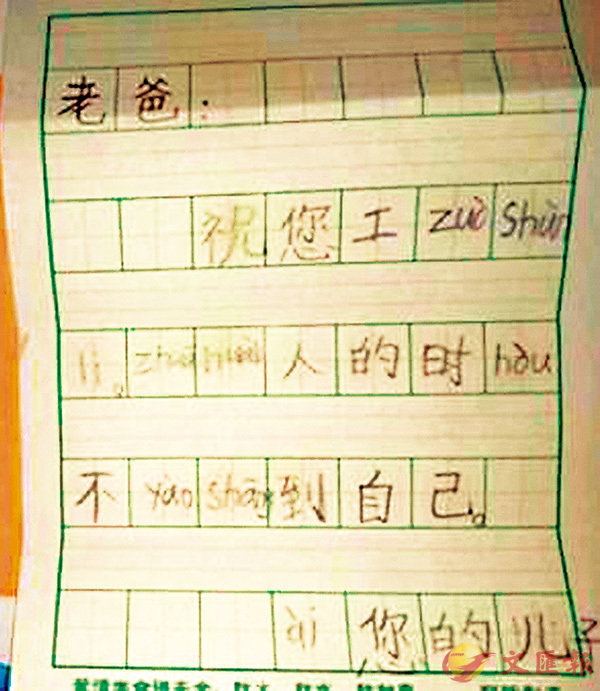 老爸：
祝您工 zuò shùn
lì。zhuā huài 人的时 hòu
不 yào shāng 到自己。
ài 您的儿子
文匯報